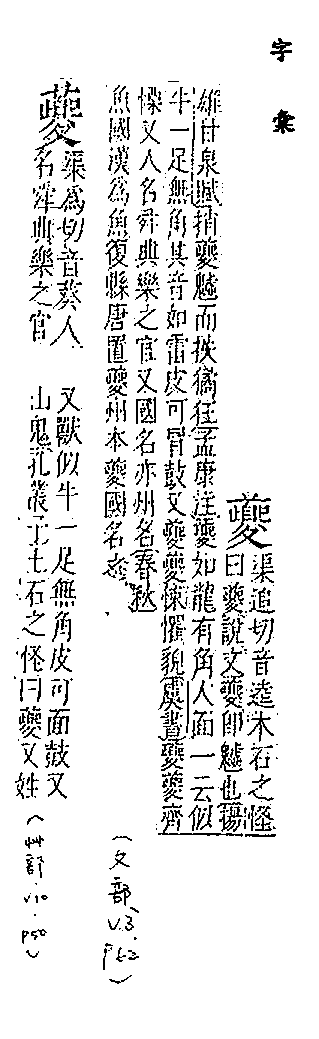 字彙
夔
渠追切音逵木石之怪
曰夔說文夔卽魖也揚
雄甘泉賦捎夔魖而抶獝狂孟康注夔如龍有角人面一云似
牛一足無角其音如雷皮可冒鼓又夔夔悚懼貌虞書夔夔齊
慄又人名舜典樂之官又國名亦州名春秋
魚國漢為魚復縣唐置夔州本夔國名
(文部、V.3. P62)
夔
渠為切音葵人
名舜典樂之官
又獸似牛一足無角皮可面鼓又
山鬼孔叢子土石之怪曰夔又姓
(艸部.V10.P50)